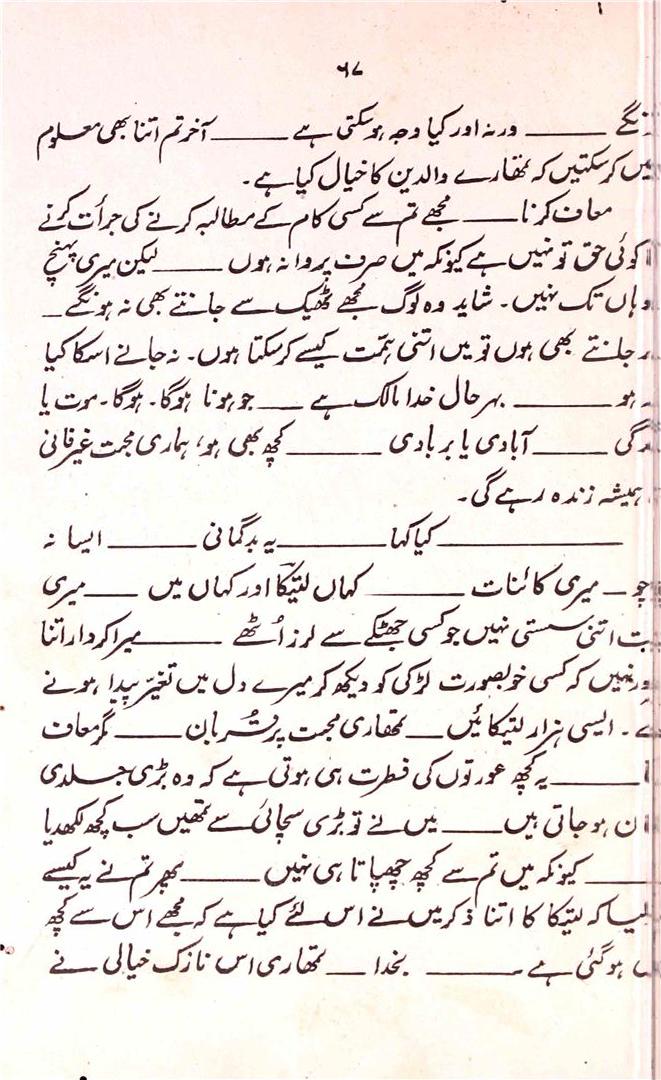 ۶۷
ورنہ اور کیا وجہ ہوسکتی ہے ——— آخر تم اتنا بھی معلوم
کرسکتیں کہ تمھارے والدین کا خیال کیا ہے۔
معاف کرنا —— مجھے تم سے کسی کام کے مطالبہ کرنے کی جرأت کرنے
کوئی حق تو نہیں ہے کیونکہ میں صرف پروانہ ہوں —— لیکن میری پہنچ
وہاں تک نہیں۔ شاید وہ لوگ مجھے ٹھیک سے جانتے بھی نہ ہونگے —
جانتے بھی ہوں تو میں اتنی ہمّت کیسے کرسکتا ہوں۔ نہ جانے اسکا کیا
ہو ——— بہرحال خدا مالک ہے —— جو ہونا ہوگا۔ ہوگا۔ موت یا
——— آبادی یا بربادی ——— کچھ بھی ہو، ہماری محبت غیرفانی
ہمیشہ زندہ رہے گی۔
————— کیا کہا ———— یہ بدگمانی ——— ایسا نہ
— میری کائنات ——— کہاں لتیکا اور کہاں میں —— میری
اتنی سستی نہیں جو کسی جھٹکے سے لرز اُٹھے ——— میرا کردار اتنا
نہیں کہ کسی خوبصورت لڑکی کو دیکھ کر میرے دل میں تغیّر پیدا ہونے
۔ ایسی ہزار لتیکائیں — تمھاری محبت پر قُربان —— مگر معاف
——— یہ کچھ عورتوں کی فطرت ہی ہوتی ہے کہ وہ بڑی جلدی
ہوجاتی ہیں —— میں نے تو بڑی سچائی سے تمھیں سب کچھ لکھدیا
—— کیونکہ میں تم سے کچھ چھپاتا ہی نہیں ——— پھر تم نے یہ کیسے
کہ لتیکا کا اتنا ذکر میں نے اس لئے کیا ہے کہ مجھے اس سے کچھ
ہوگئی ہے ——— بخدا —— تمھاری اس نازک خیالی نے